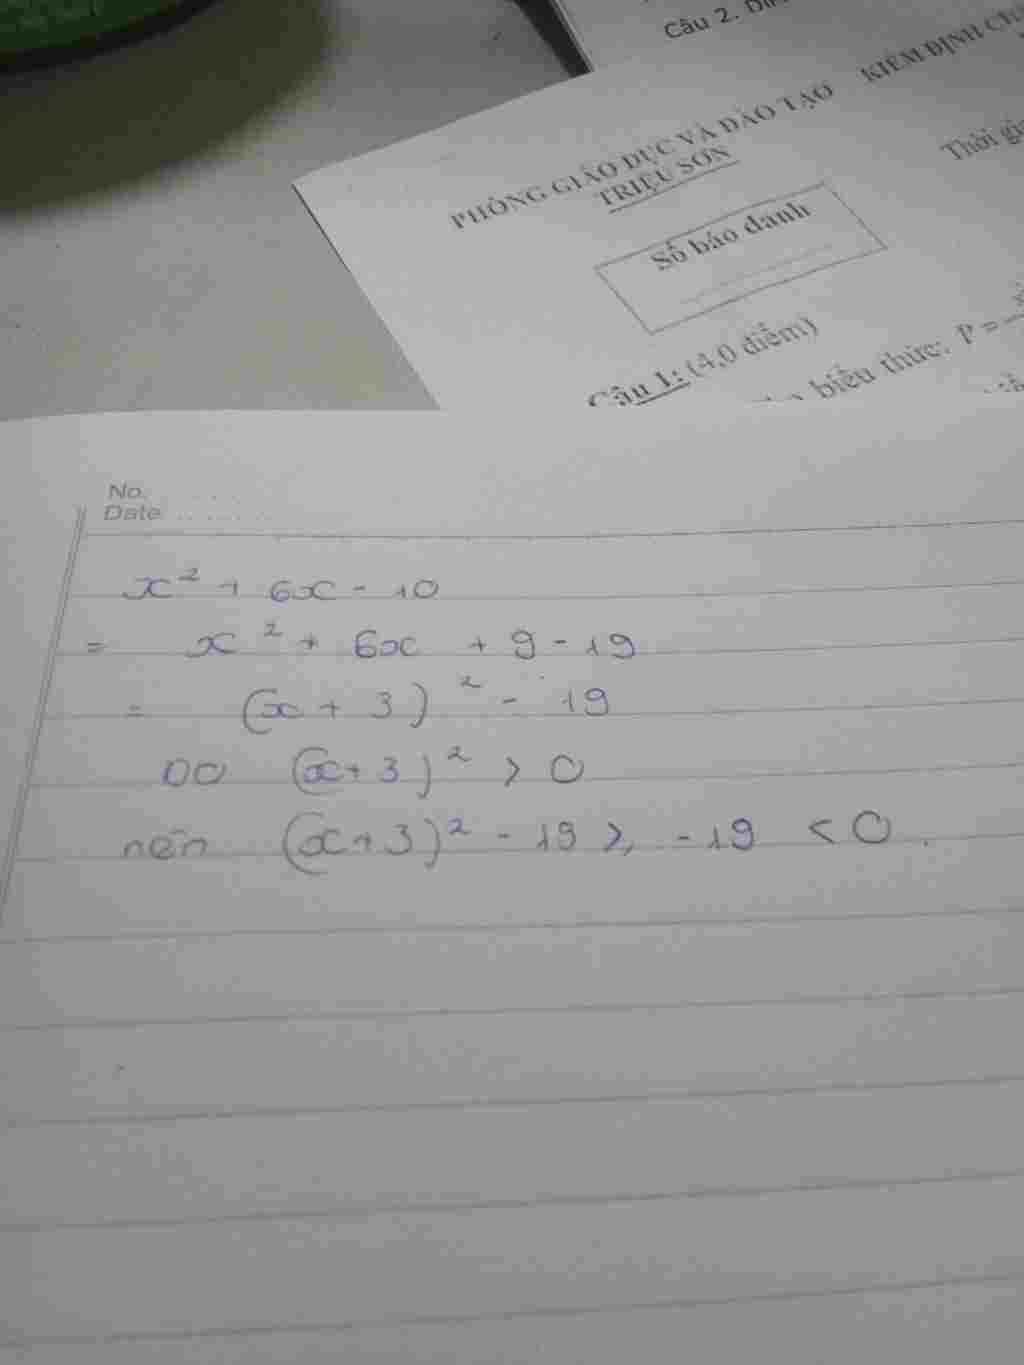 Câu 2.
PHÒNG GIÁO DỤC VÀ ĐÀO TẠO
TRIỆU SƠN
KIỂM ĐỊNH
Thời
Số báo danh
Câu 1: (4,0 điểm)
biểu thức: P =
No.
Date
x² + 6x - 10
= x² + 6x + 9 - 19
= (x + 3)² - 19
DO (x+3)² > 0
nên (x+3)² - 19 ≥ -19 < 0.